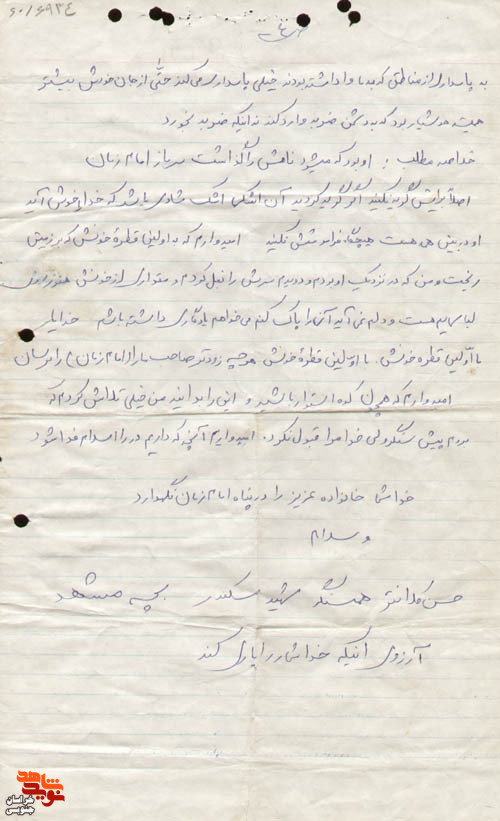 ۶۰/۶۹۳۴
به پاسداری از مناطقی که بدما واداشته بودند خیلی پاسداری می‌کند حتّی از جان خودش بیشتر
همیشه هوشیار بود که به دشمن ضربه وارد کند نه اینکه ضربه بخورد
خلاصه مطلب : او بود که میشود نامش را گذاشت سرباز امام زمان
اصلاً برایش گریه نکنید اگر گریه کردید آن اشکی اشک شادی باشد که خدا خوشش آید
او در بین ما هست هیچگاه فراموشش نکنید امیدوارم که به اولین قطرهٔ خونش که بر زمین
ریخت و من که در نزدیک او بودم و دویدم سرش را بغل کردم و مقداری از خونش هنوز روی
لباسهایم هست و دلم نمی آید آن را پاک کنم می‌خواهم یادگاری داشته باشم خدایا
با اولین قطره خونش . با اولین قطرهٔ خونش هر چه زودتر صاحب ما را (امام زمان) را برسان
امیدوارم که همچون کوه استوار باشید و این را بدانید من خیلی تلاش کردم که
بروم پیش سنگر ولی خدا مرا قبول نکرد. امیدوارم آنچه که داریم در راه اسلام فدا شود
خدا شما خانواده عزیز را در پناه امام زمان نگهدارد
والسلام
حسن کلانتر همسنگر شهید سکندر بچه مشهد
آرزوی اینکه خدا شما را یاری کند
شاهد
نوید
خراسان
جنوبی